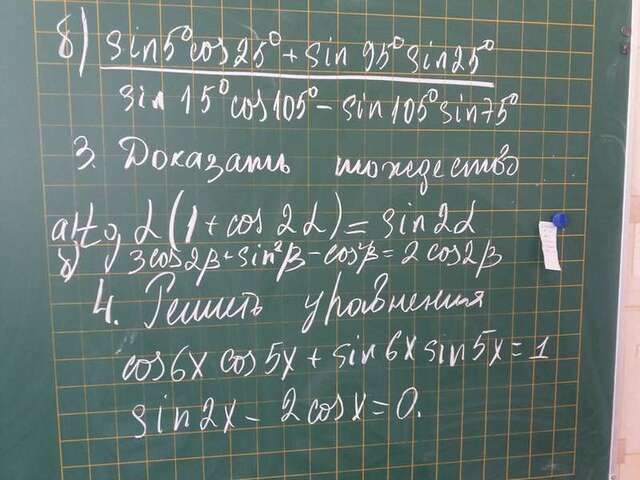 б) sin5°cos25° + sin 95° sin25°
sin 15° cos105° - sin 105° sin75°
3. Доказать тождество
а) tg α (1 + cos 2α) = sin 2α
б) 3cos2β + sin²β - cos²β = 2 cos2β
4. Решить уравнения
cos6x cos5x + sin6x sin5x = 1
sin2x - 2cosx = 0.